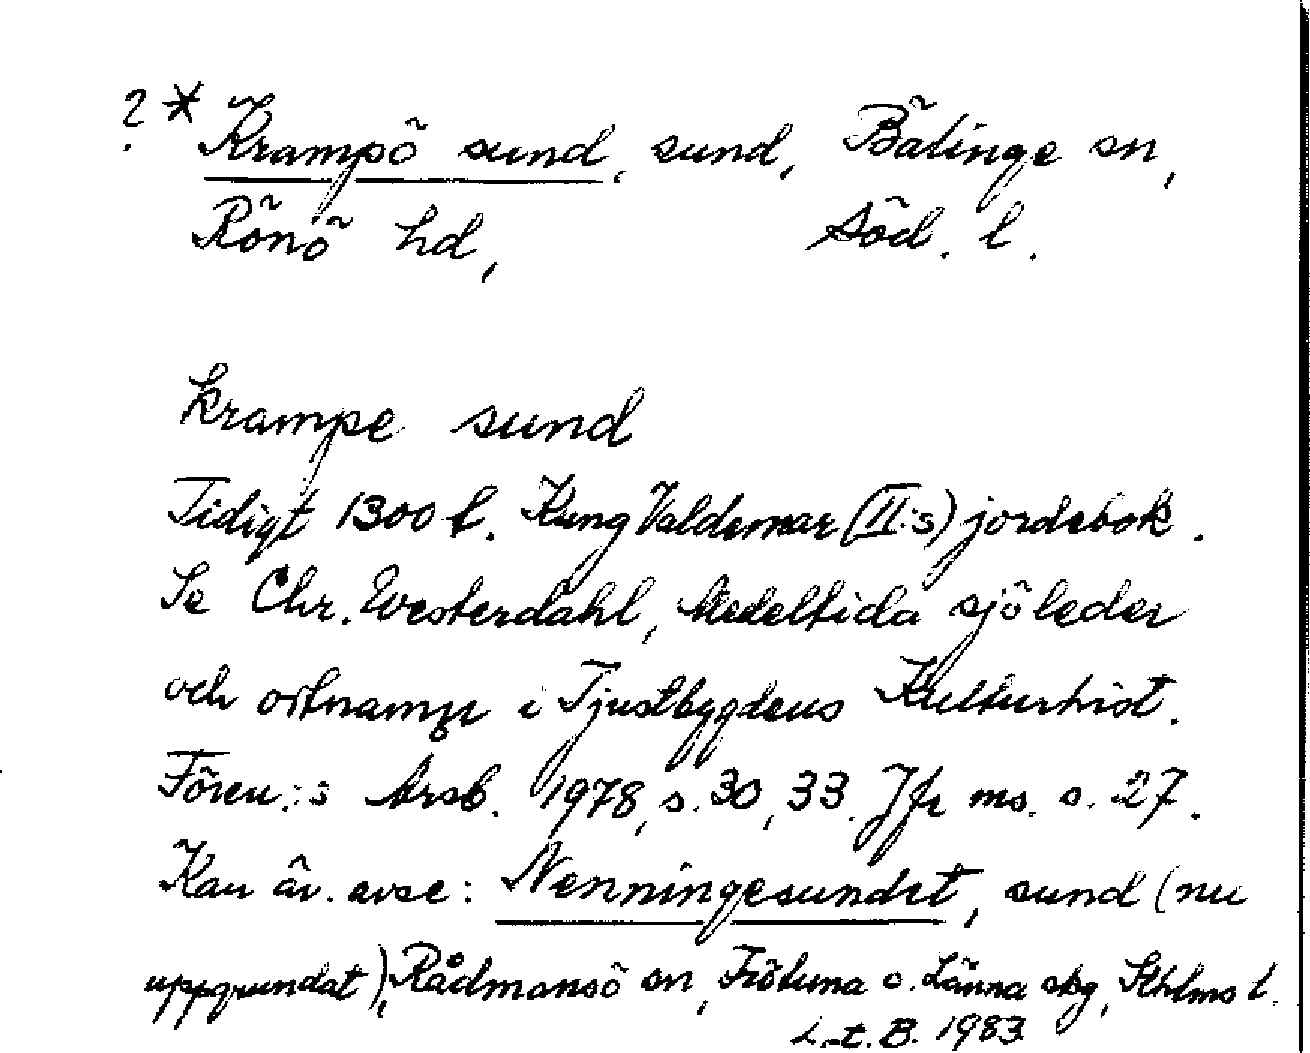 ? * Krampö sund, sund, Bälinge sn,
Rönö hd, Söd. l.
krampe sund
Tidigt 1300 t. Kung Valdemar (II:s) jordebok.
Se Chr. Westerdahl, Medeltida sjöleder
och ortnamn i Tjustbygdens Kulturhist.
Fören:s Årsb. 1978, s. 30, 33. Jfr ms. s. 27.
Kan äv. avse: Nenningesundet, sund (nu
uppgrundat), Rådmansö sn, Frötuna o. Länna skg, Sthlms l.
L-t. B. 1983